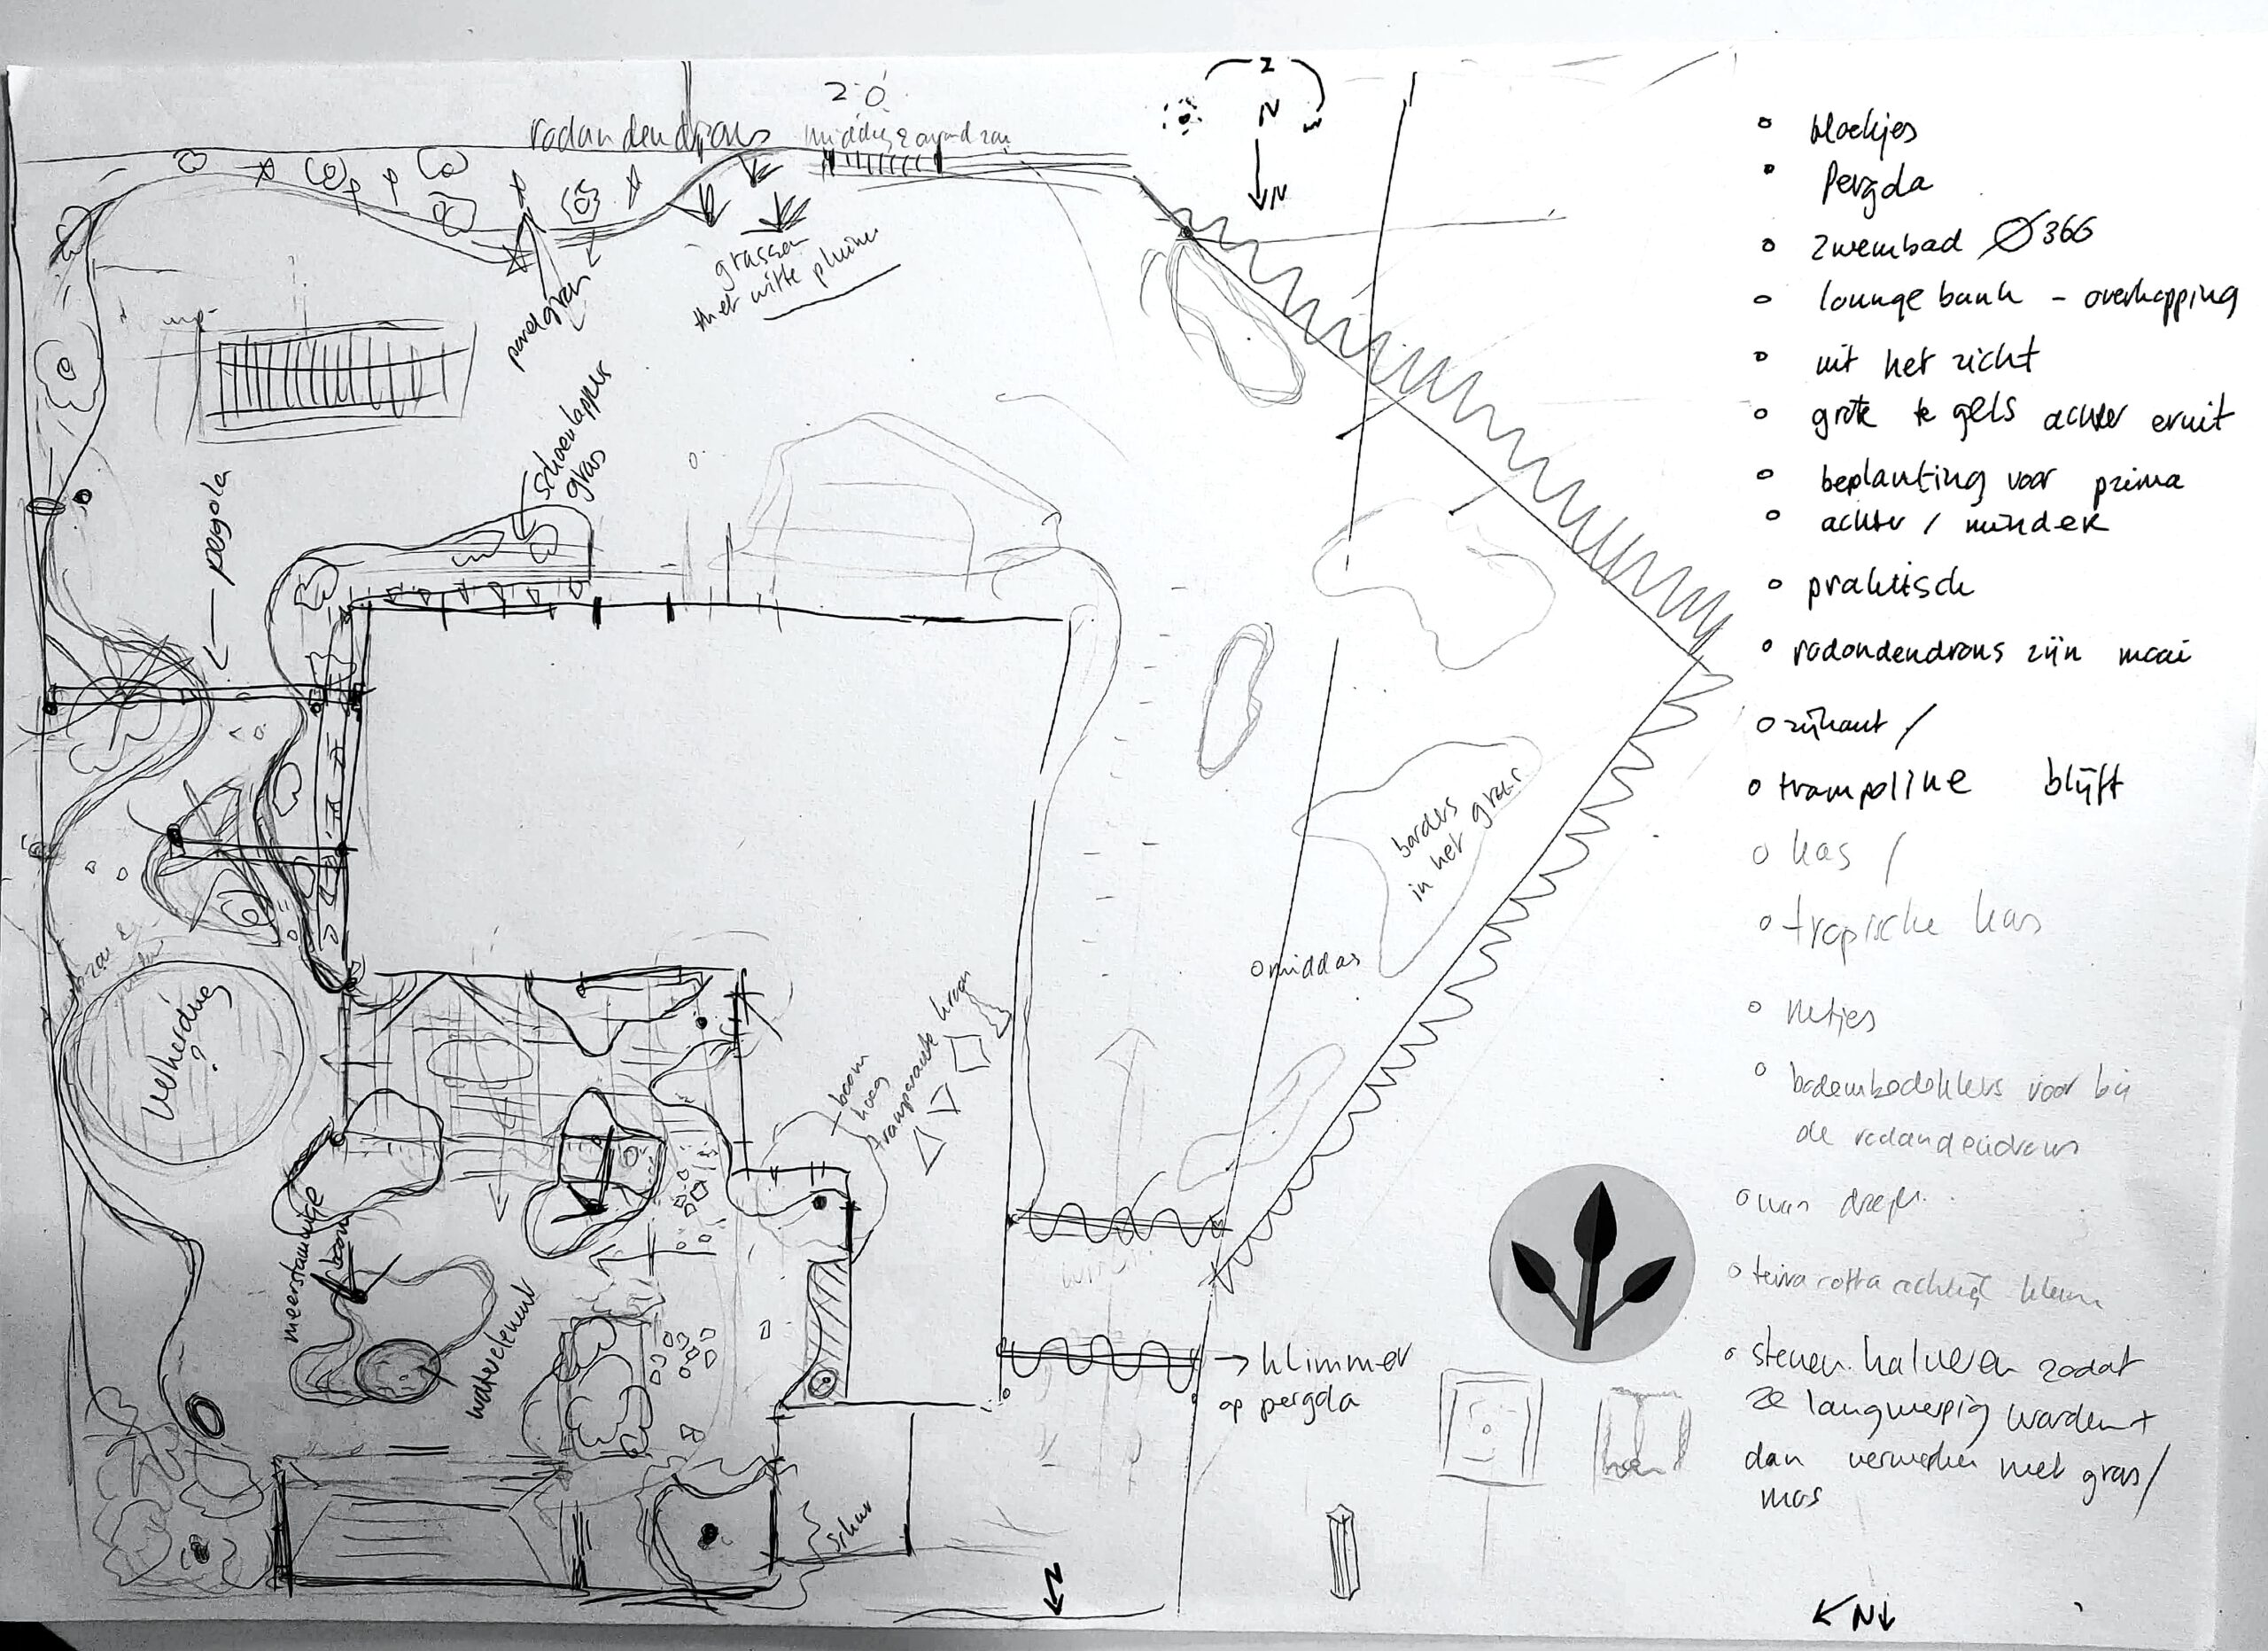 radandendrons
Z
N
N
grassen
met witte pluimen
parelgras
schoenlappers
gras
pergola
borders
in het gras
middas
boom
hoog
transparante kroon
Verharding
?
meerstammige
boom
waterelement
schuur
klimmer
op pergola
N
N
blokjes
Pergola
zwembad Ø366
lounge bank - overkapping
uit het zicht
grote tegels achter eruit
beplanting voor prima
achter / minder
praktisch
radondendrons zijn mooi
zijkant /
trampoline blijft
kas /
tropische kas
netjes
bodembedekkers voor bij
de radandendrons
terra cotta achtige kleur
stenen halveren zodat
ze langwerpig worden +
dan verwerken met gras/
mos